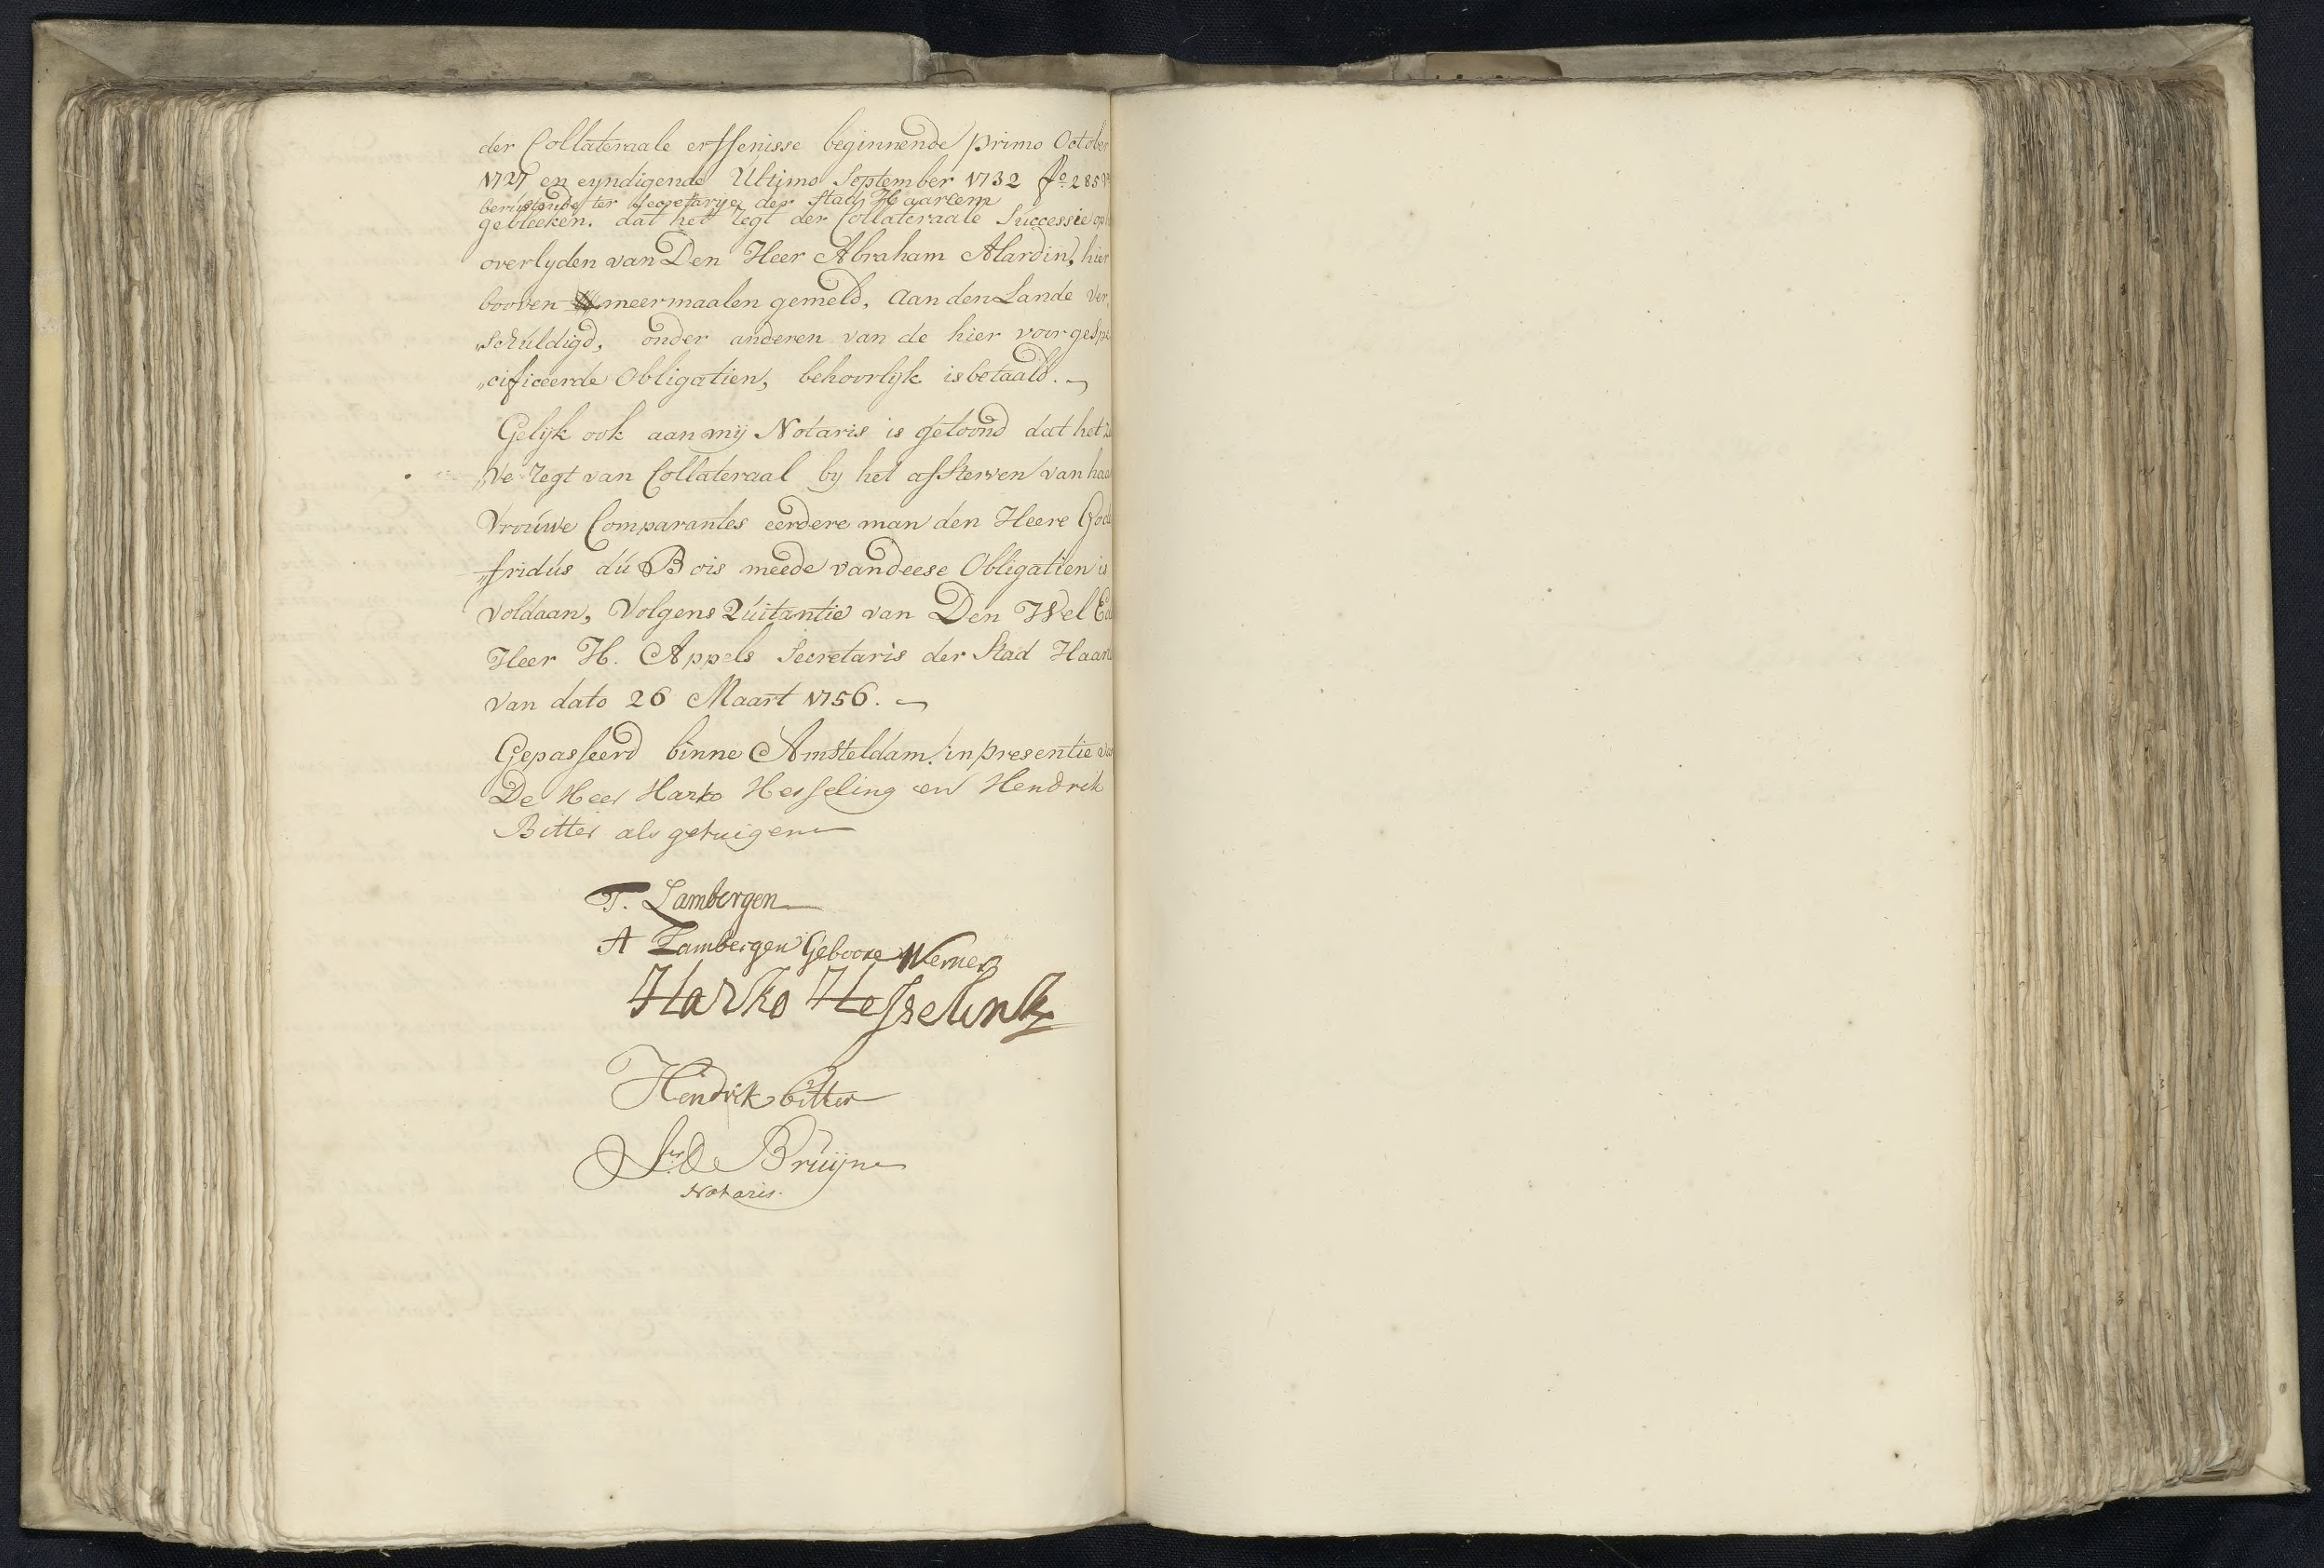 der Collateraale erffenisse beginnende primo October
1727 en eyndigende Ultimo September 1732 fo. 285 vo
berustende ter Secretarye der stad Haarlem
gebleeken. dat het regt der Collateraale Successie op
overlyden van Den Heer Abraham Alardin, hier
booven meermaalen gemeld, aan den Lande ver„
„schuldigd, onder anderen van de hier voor gespe
„cificeerde Obligatien, behoorlyk is betaald. —
Gelyk ook aan mij Notaris is getoond dat het
„ve regt van Collateraal by het afsterven van haar
Vrouwe Comparantes eerdere man den Heere Gode
„fridus du Bois meede van deese Obligatien is
voldaan, Volgens Quitantie van Den Wel Ed
Heer H. Appels Secretaris der Stad Haarl
van dato 26 Maart 1756. —
Gepasseerd binne Amsteldam, in presentie van
De Heer Harko Hesseling en Hendrik
Bitter als getuigen
T. Lambergen
A Lambergen Geboore Werner
Harko Hesselink
Hendrik bitter
De Bruijn
Notaris.